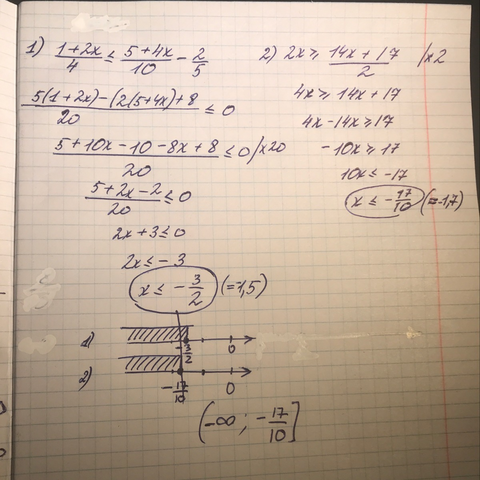 1) (1+2x)/4 ≤ (5+4x)/10 - 2/5
(5(1+2x)-(2(5+4x)+8)/20 ≤ 0
(5+10x-10-8x+8)/20 ≤ 0 /x20
(5+2x-2)/20 ≤ 0
2x+3 ≤ 0
2x ≤ -3
x ≤ -3/2 (=1,5)
2) 2x ≥ (14x+17)/2 /x2
4x ≥ 14x+17
4x-14x ≥ 17
-10x ≥ 17
10x ≤ -17
x ≤ -17/10 (=-1,7)
1) -3/2 0
2) -17/10 0
(-∞ ; -17/10]